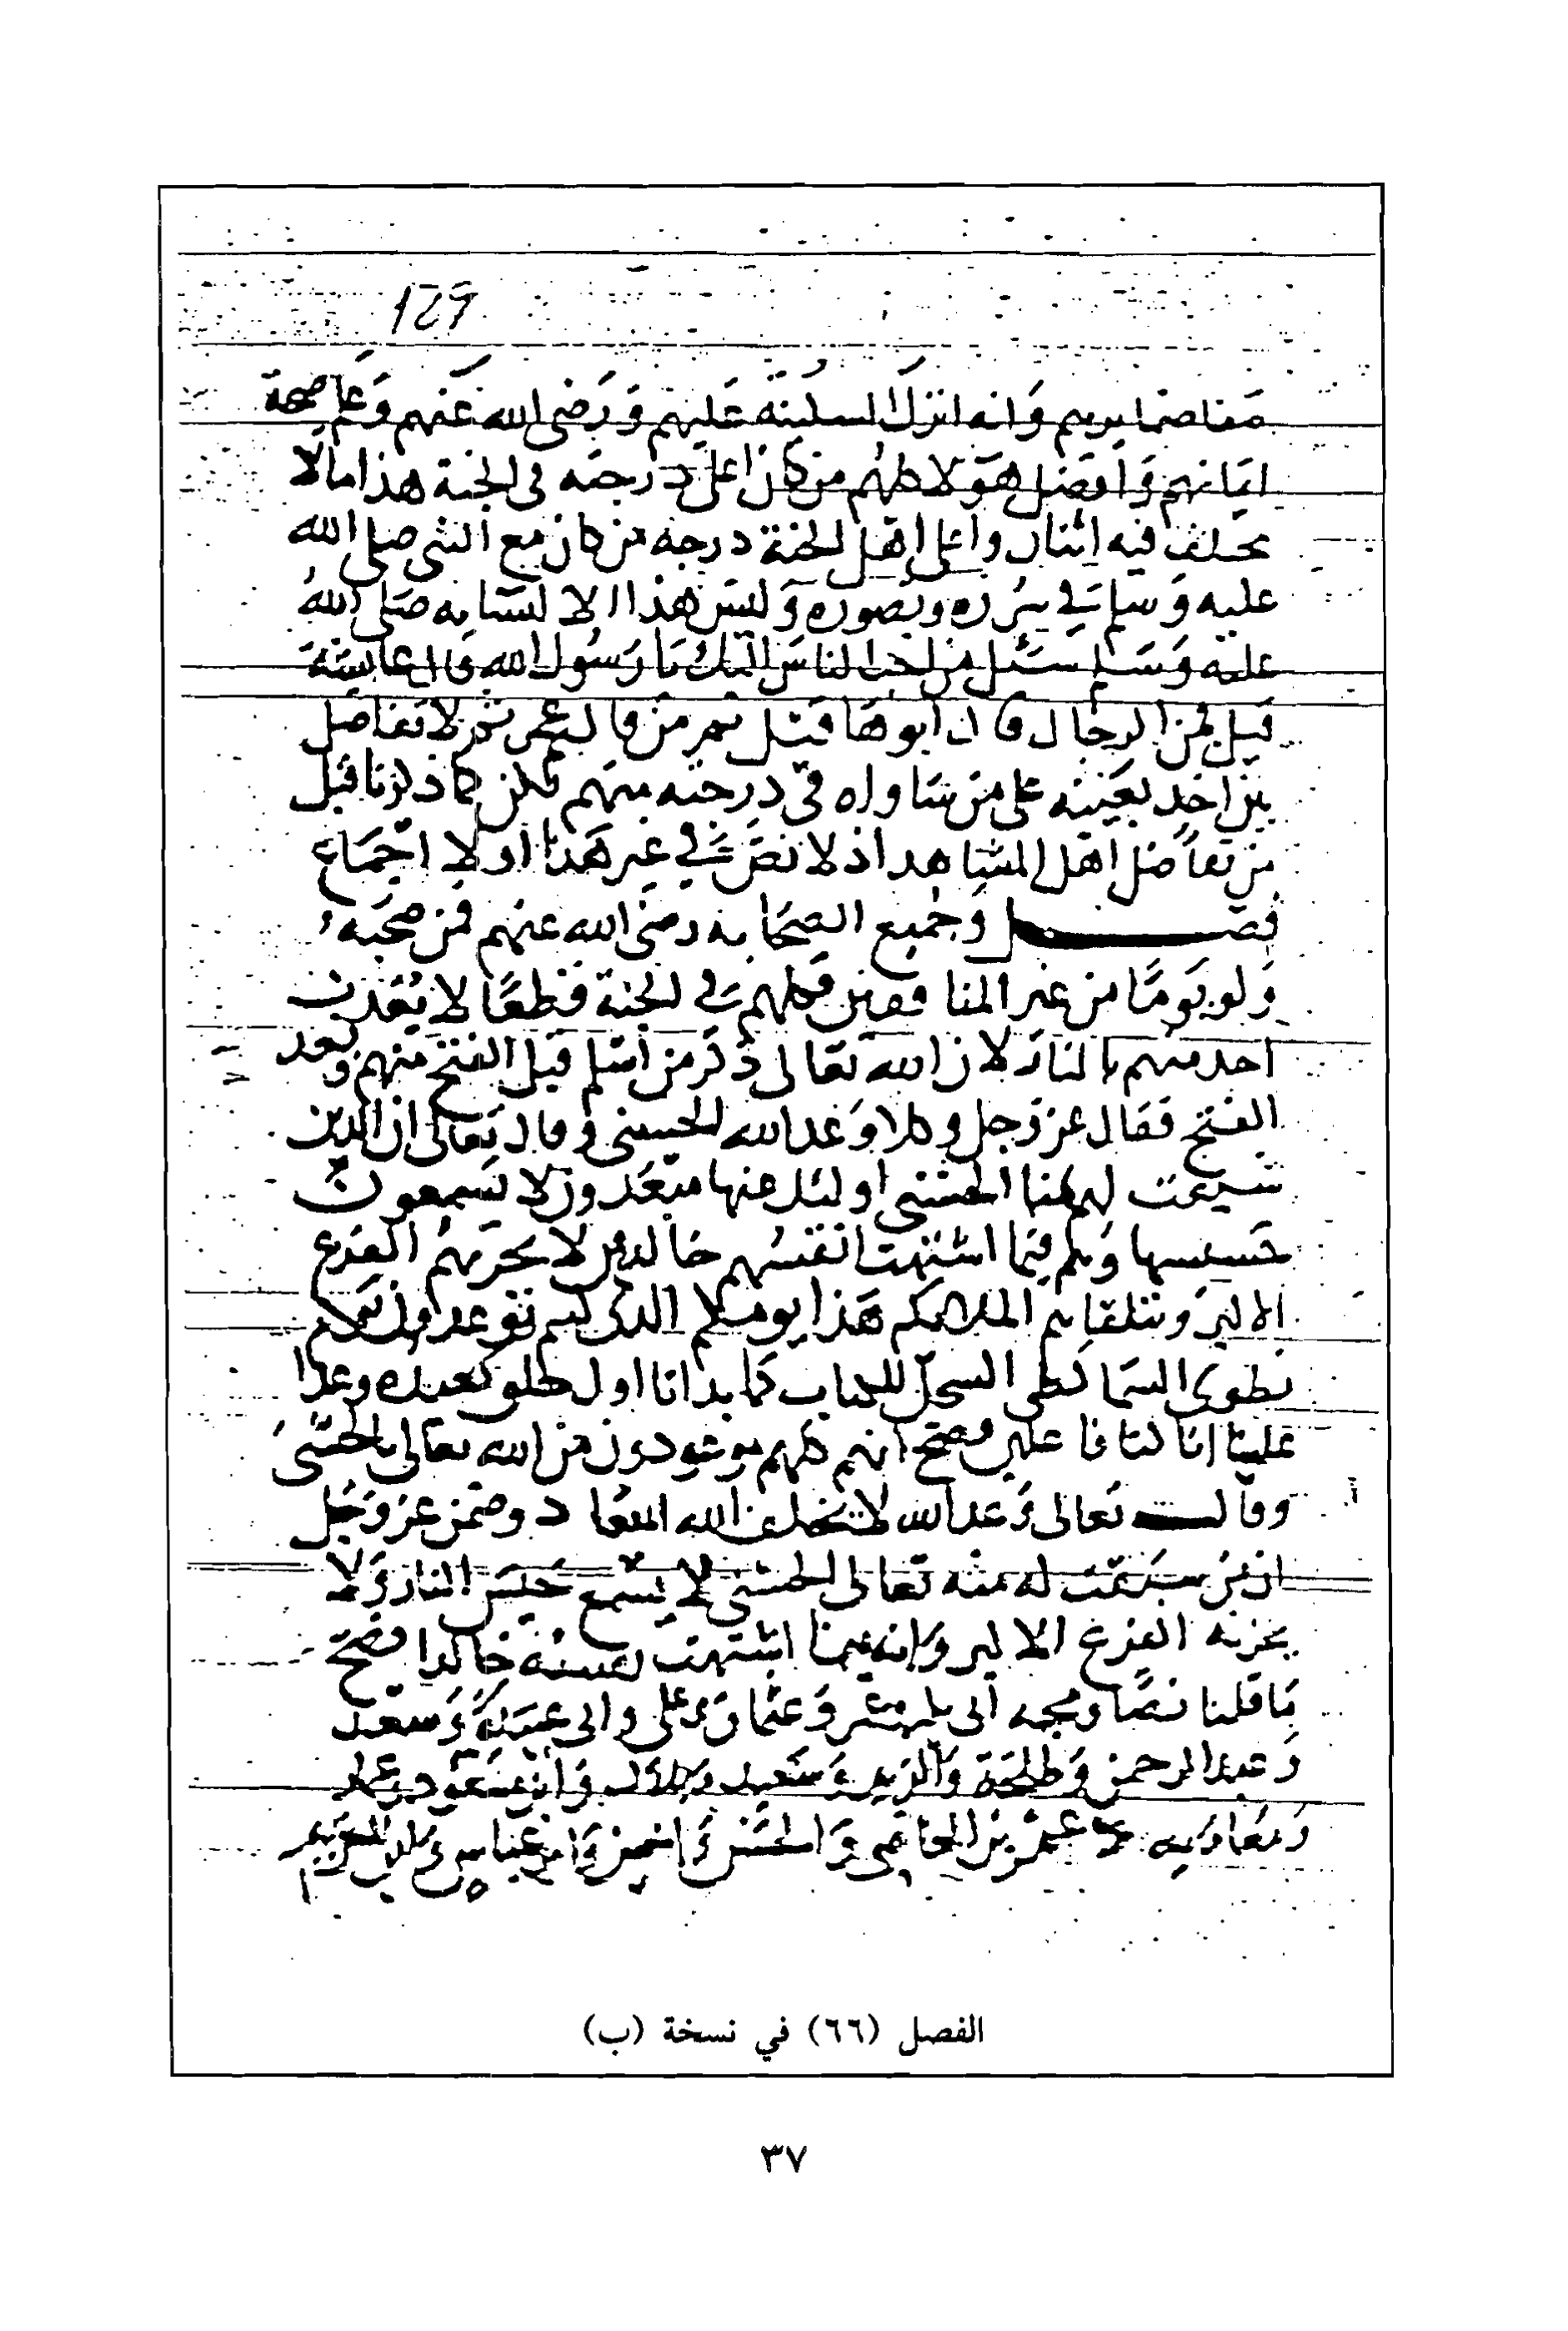 129
وانه انزل السكينة عليهم ورضى الله عنهم وعلم صحة
ايمانهم وافضل هؤلاء كلهم من كان اعلى درجه فى الجنة هذا مالا
يختلف فيه اثنان واعلى اهل الجنة درجه من كان مع النبى صلى الله
عليه وسلم في سرره وقصوره وليس هذا الا لنسايه صلى الله
عليه وسلم سئل من احب الناس اليك يا رسول الله قال عايشة
قيل فمن الرجال قال ابوها قيل ثم من قال عمر ثم لا تفاضل
بين احد بعينه على من ساواه في درجته منهم لكن كما ذكرنا قبل
من تفاضل اهل المشاهد اذ لا نص في غير هذا ولا اجماع
فصل وجميع الصحابه رضى الله عنهم فمن صحبه
ولو يوما من غير المنافقين فكلهم في الجنة قطعا لا يعذب
احد منهم بالنار لان الله تعالى ذكر من اسلم قبل الفتح منهم وبعد
الفتح فقال عز وجل وكلا وعد الله الحسنى وقال تعالى ان الذين
سبقت لهم منا الحسنى اولئك عنها مبعدون لا يسمعون
حسيسها وهم فيما اشتهت انفسهم خالدون لا يحزنهم الفزع
الاكبر وتتلقاهم الملائكه هذا يومكم الذي كنتم توعدون يوم
نطوى السما كطى السجل للكتاب كما بدانا اول خلق نعيده وعدا
علينا انا كنا فاعلين فصح انهم كلهم موعودون من الله تعالى بالحسنى
وقال تعالى وعد الله لا يخلف الله الميعاد وضمن عز وجل
ان من سبقت له منه تعالى الحسنى لا يسمع حسيس النار ولا
يحزنه الفزع الاكبر وانه فيما اشتهت نفسه خالدا فصح
ما قلنا نصا وعثمان وعلى وابى عبيدة وسعد
وعبد الرحمن وطلحة والزبير وسعيد وبلال وابن مسعود وعمار
ومعاويه وعمرو بن العاصى والحسن والحسين وابن عباس
الفصل (٦٦) في نسخة (ب)
٣٧